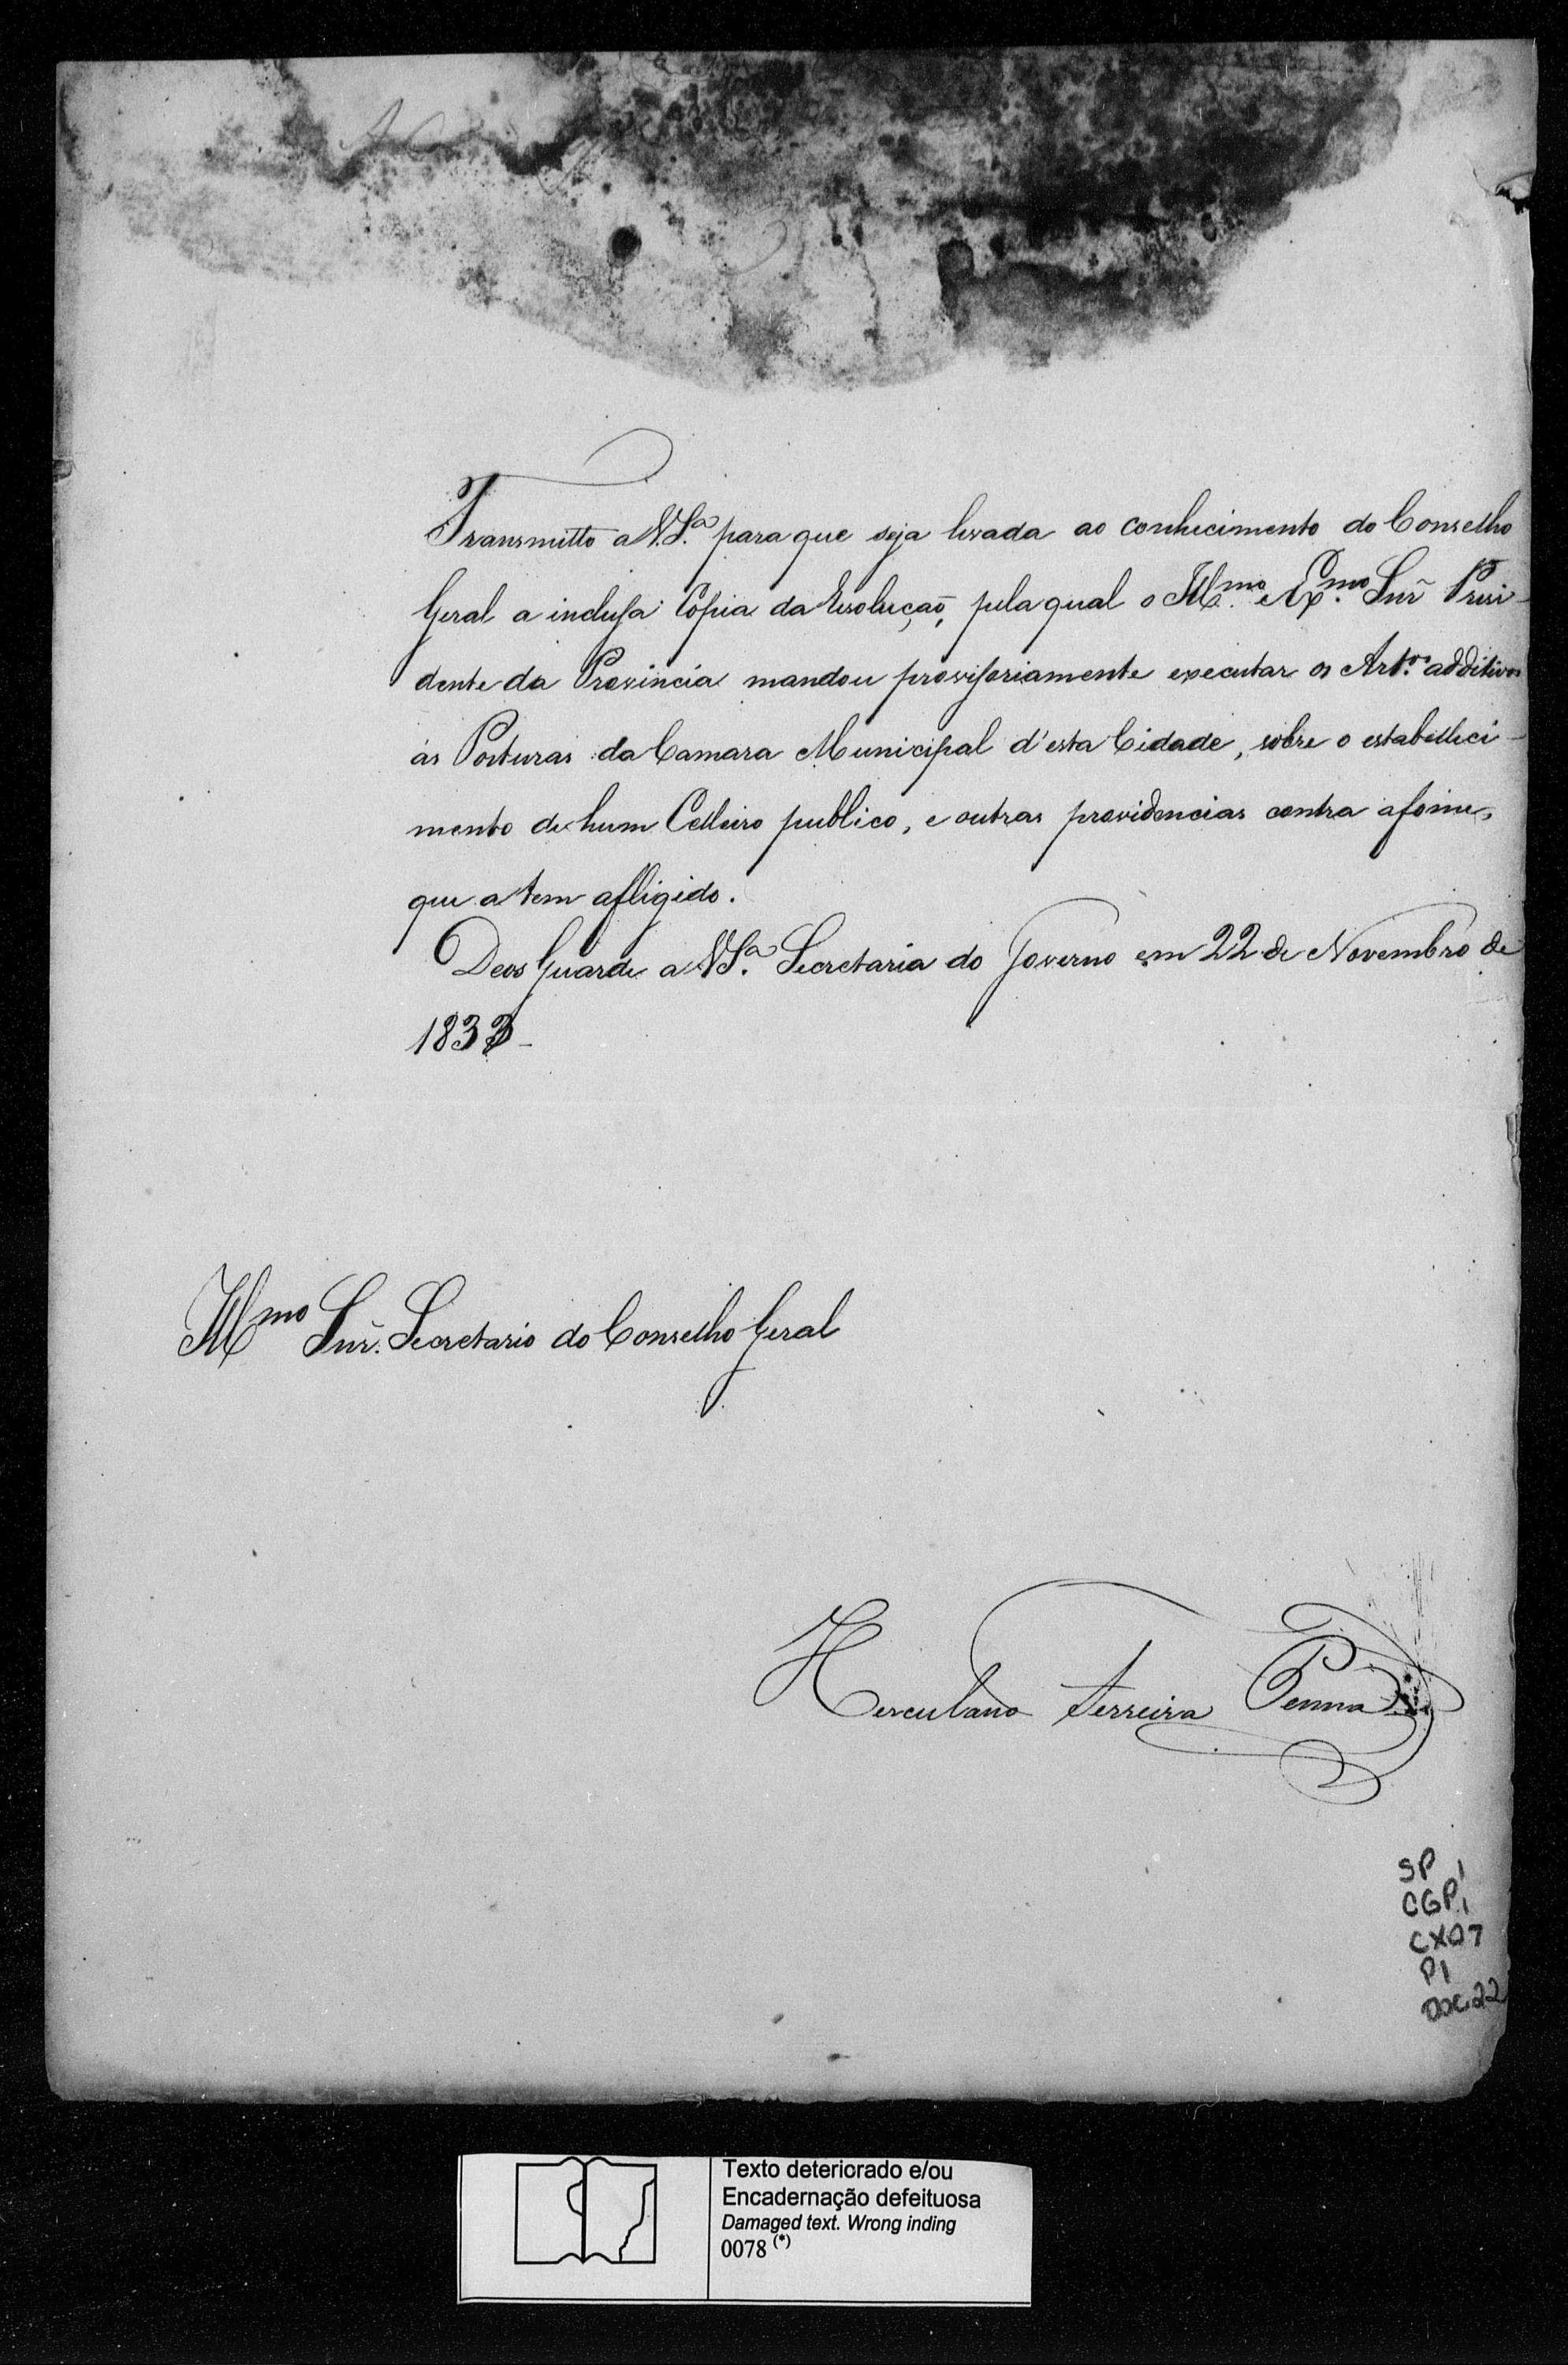 Transmitto a V.S.ª para que seja levada ao conhecimento do Conselho
Geral a inclusa Copia da Resolução, pela qual o Ill.mo e Ex.mo Snr̃ Presi-
dente da Provincia mandou provisoriamente executar os Art.os additivos
ás Posturas da Camara Municipal d'esta Cidade, sobre o estabelleci-
mento de hum Celleiro publico, e outras providencias contra a fome,
que a tem afligido.
Deos Guarde a V.S.ª Secretaria do Governo em 22 de Novembro de
1833-
Ill.mo Snr̃. Secretario do Conselho Geral
Herculano Ferreira Penna
SP 1
CGP 1
CX07
P1
DOC.22
Texto deteriorado e/ou
Encadernação defeituosa
Damaged text. Wrong inding
0078 (*)